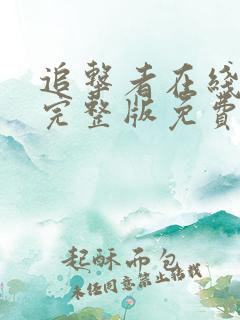 追擊者在綫
完整版免費
起酥面包
未经同意禁止转载